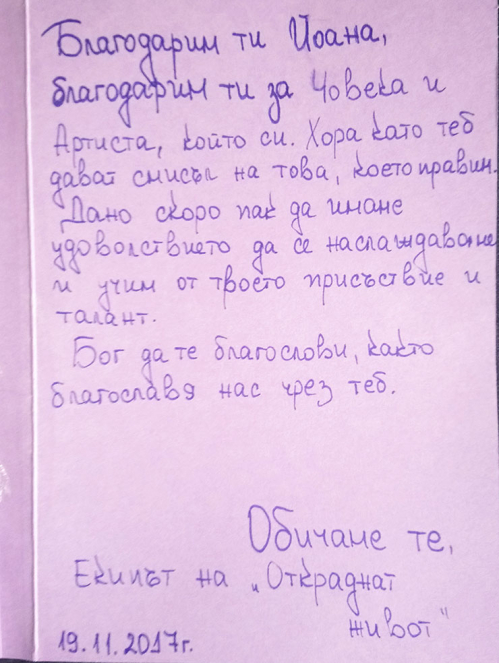 Благодарим ти Йоана,
благодарим ти за Човека и
Артиста, който си. Хора като теб
дават смисъл на това, което правим.
Дано скоро пак да имаме
удоволствието да се наслаждаваме
и учим от твоето присъствие и
талант.
Бог да те благослови, както
благославя нас чрез теб.
Обичаме те,
Екипът на „Откраднат
живот"
19.11.2017г.